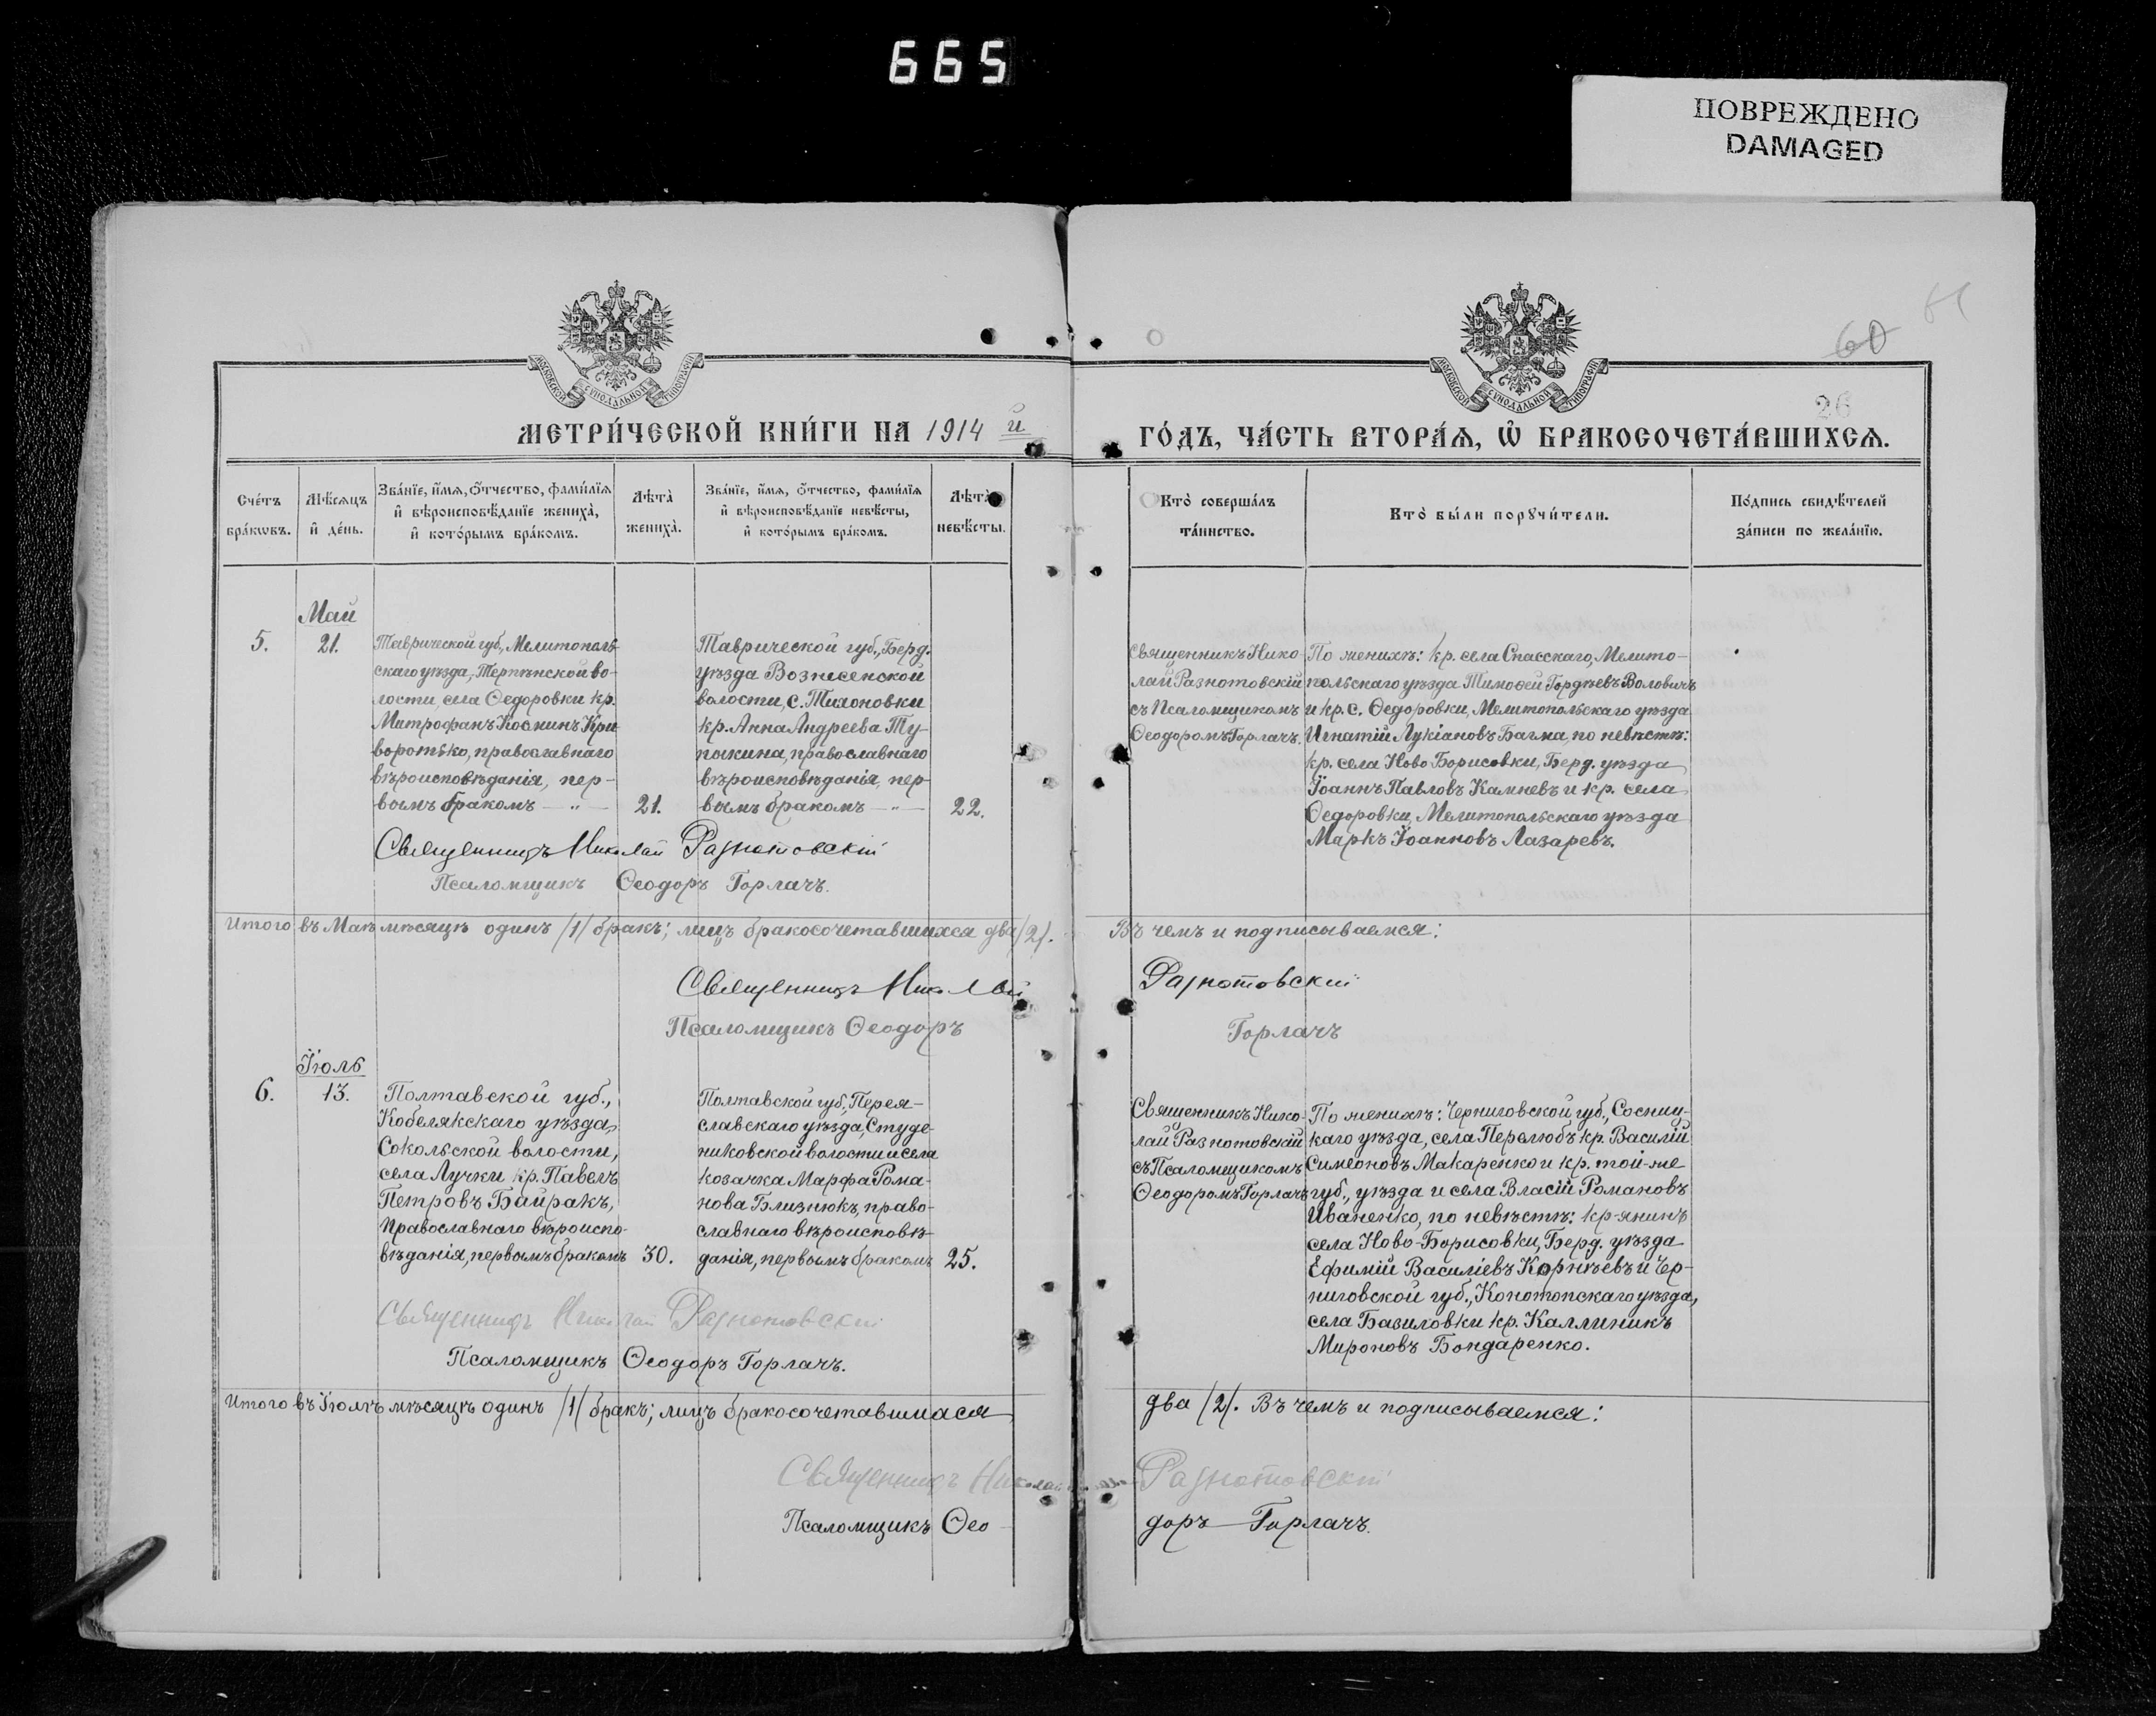 665
ПОВРЕЖДЕНО
DAMAGED
МОСКОВСКОЙ СѴНОДАЛЬНОЙ ТИПОГРАФІИ
МОСКОВСКОЙ СѴНОДАЛЬНОЙ ТИПОГРАФІИ
60
26
МЕТРИ́ЧЕСКОЙ КНИ́ГИ НА 1914 й
ГО́ДЪ, ЧА́СТЬ ВТОРА́Ѧ, Ѡ҆ БРАКОСОЧЕТА́ВШИХСѦ.
Сче́тъ
бра́кѡвъ.
Мѣ́сяцъ
и҆ де́нь.
Зва́нїе, и҆́мѧ, ѻ҆́тчество, фами́лїѧ
и҆ вѣроисповѣ́данїе жениха̀,
и҆ кото́рымъ бра́комъ.
Лѣта̀
жениха̀.
Зва́нїе, и҆́мѧ, ѻ҆́тчество, фами́лїѧ
и҆ вѣроисповѣ́данїе невѣ́сты,
и҆ кото́рымъ бра́комъ.
Лѣта̀
невѣ́сты.
Кто̀ соверша́лъ
та́инство.
Кто̀ бы́ли порꙋчи́тели.
По́дпись свидѣ́телей
за́писи по жела́нїю.
Май
5.
21.
Таврической губ., Мелитополь-
скаго уѣзда, Терпѣнской во-
лости, села Ѳедоровки кр.
Митрофанъ Косминъ Кри-
воротько, православнаго
вѣроисповѣданія, пер-
вымъ бракомъ — " —
21.
Таврической губ., Берд.
уѣзда Вознесенской
волости, с. Тихоновки
кр. Анна Андреева Ту-
пыкина, православнаго
вѣроисповѣданія, пер-
вымъ бракомъ — " —
22.
Священникъ Нико-
лай Разнотовскій
съ Псаломщикомъ
Ѳеодоромъ Горлачъ.
По женихѣ: кр. села Спасскаго, Мелито-
польскаго уѣзда Тимоѳей Гордѣевъ Воловичъ
и кр. с. Ѳедоровки, Мелитопольскаго уѣзда
Игнатій Лукіановъ Багма, по невѣстѣ:
кр. села Ново Борисовки, Берд. уѣзда
Іоаннъ Павловъ Камневъ и кр. села
Ѳедоровки, Мелитопольскаго уѣзда
Маркъ Іоанновъ Лазаревъ.
Священникъ Николай Разнотовскій
Псаломщикъ Ѳеодоръ Горлачъ.
Итого въ Маѣ мѣсяцѣ одинъ /1/ бракъ; лицъ бракосочетавшихся два /2/. Въ чемъ и подписываемся:
Священникъ Николай Разнотовскій
Псаломщикъ Ѳеодоръ Горлачъ
Іюль
6.
13.
Полтавской губ.,
Кобелякскаго уѣзда,
Сокольской волости,
села Лучки кр. Павелъ
Петровъ Байракъ,
православнаго вѣроиспо-
вѣданія, первымъ бракомъ
30.
Полтавской губ., Перея-
славскаго уѣзда, Студе-
никовской волости и села
козачка Марфа Рома-
нова Близнюкъ, право-
славнаго вѣроисповѣ-
данія, первымъ бракомъ
25.
Священникъ Нико-
лай Разнотовскій
съ Псаломщикомъ
Ѳеодоромъ Горлачъ
По женихѣ: Черниговской губ., Сосниц-
каго уѣзда, села Перелюбъ кр. Василій
Симеоновъ Макаренко и кр. той-же
губ., уѣзда и села Власій Романовъ
Иваненко, по невѣстѣ: кр-янинъ
села Ново-Борисовки, Берд. уѣзда
Ефимій Василіевъ Корнѣевъ и Чер-
ниговской губ., Конотопскаго уѣзда,
села Базиловки кр. Каллиникъ
Мироновъ Бондаренко.
Священникъ Николай Разнотовскій
Псаломщикъ Ѳеодоръ Горлачъ.
Итого въ Іюлѣ мѣсяцѣ одинъ /1/ бракъ; лицъ бракосочетавшихся два /2/. Въ чемъ и подписываемся:
Священникъ Николай Разнотовскій
Псаломщикъ Ѳео- доръ Горлачъ.